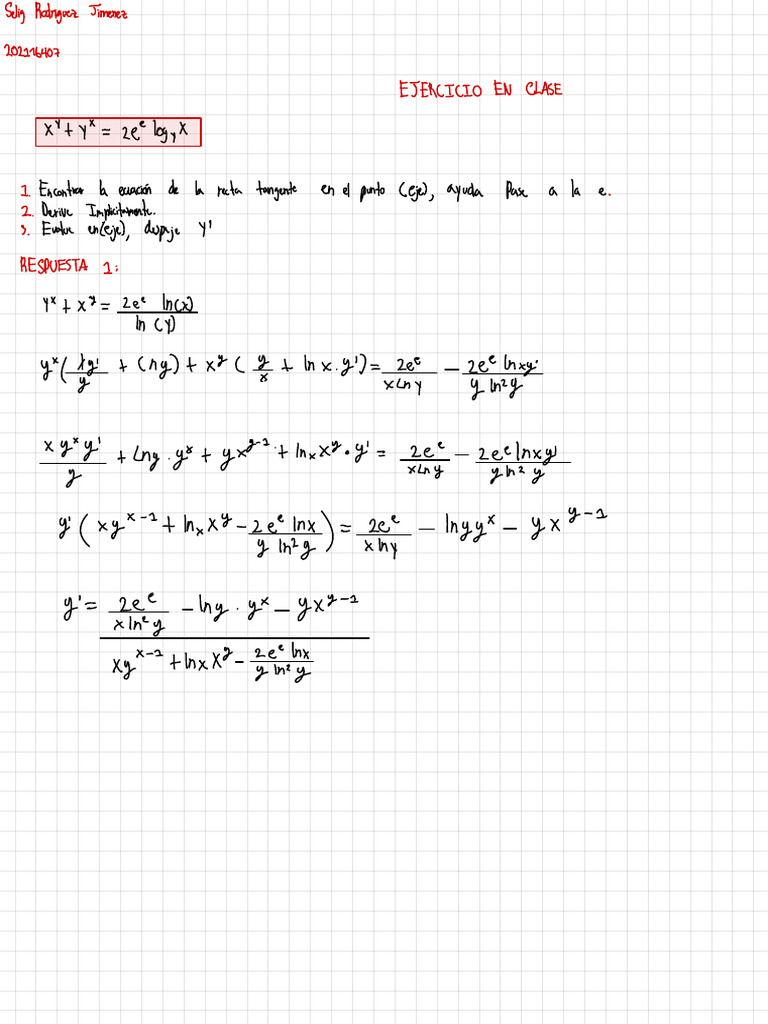 Selig Rodriguez Jimenez
202116407
EJERCICIO EN CLASE
x^y + y^x = 2e^e log_y x
1. Encontrar la ecuación de la recta tangente en el punto (e,e), ayuda Pase a la e.
2. Derive Implicitamente.
3. Evalue en(e,e), despeje y'
RESPUESTA 1:
y^x + x^y = 2e^e ln(x) / ln(y)
y^x (xy'/y + lny) + x^y (y/x + ln x · y') = 2e^e / x ln y − 2e^e ln x y' / y ln²y
x y^x y' / y + lny · y^x + y x^{y-1} + ln x x^y · y' = 2e^e / x ln y − 2e^e ln x y' / y ln² y
y' ( x y^{x-1} + ln x x^y − 2e^e ln x / y ln² y ) = 2e^e / x ln y − ln y y^x − y x^{y-1}
y' = 2e^e / x ln^e y − ln y · y^x − y x^{y-1} / x y^{x-1} + ln x x^y − 2e^e ln x / y ln² y